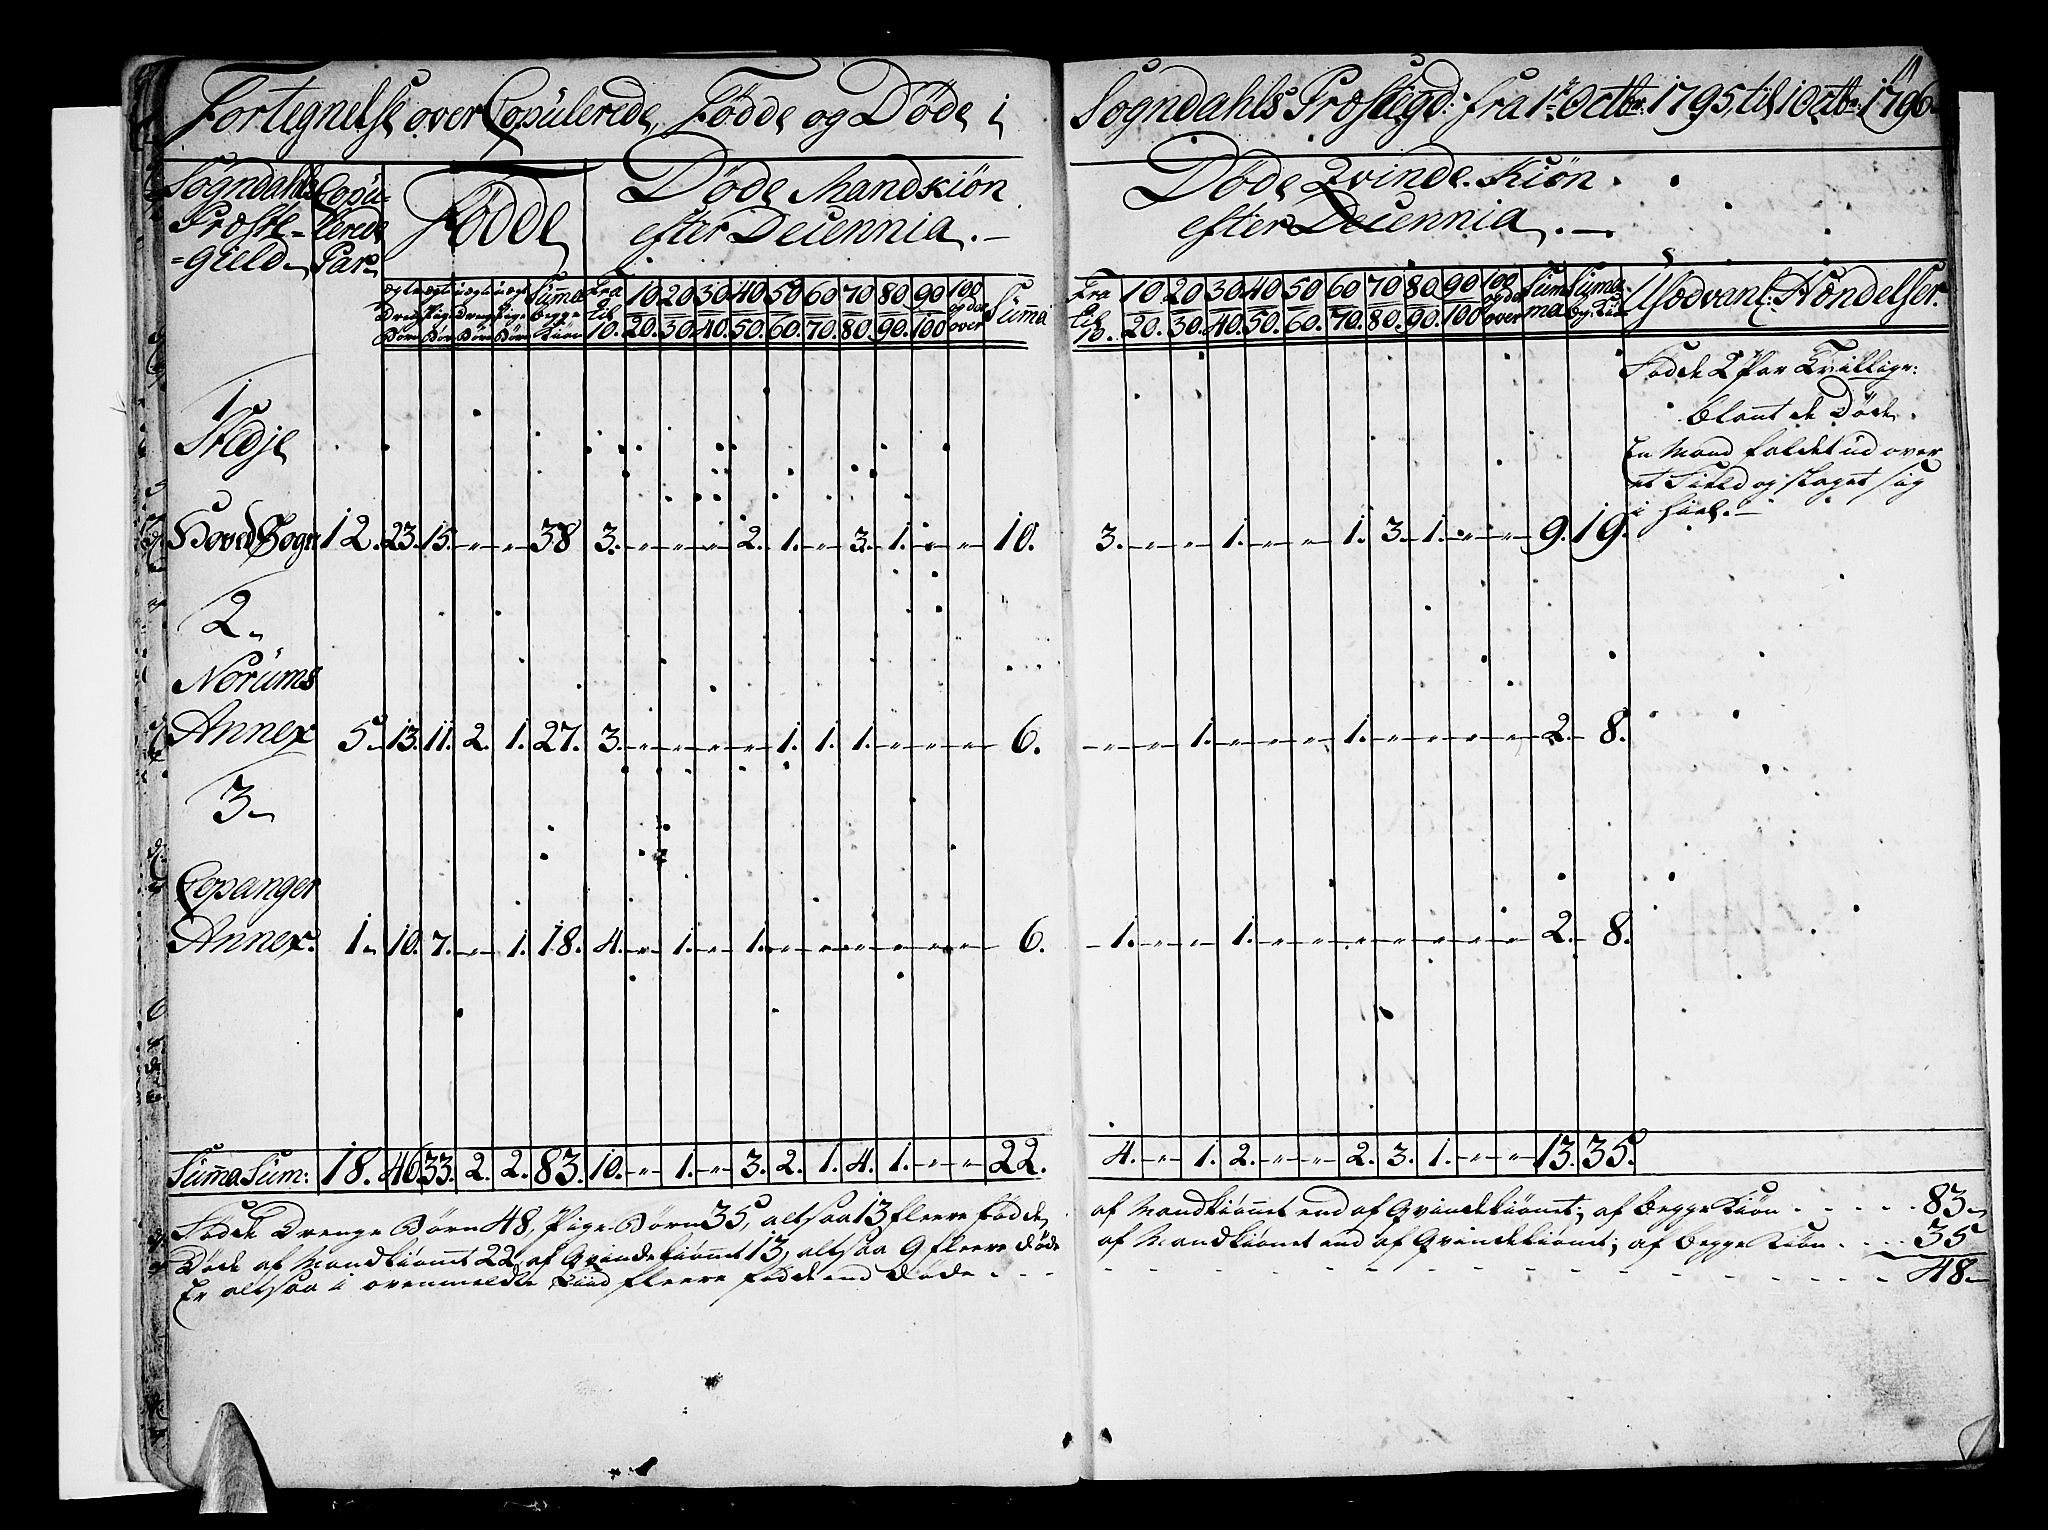 Fortegnelse over Copülerede, Fødde og Døde i Sogndahls Præstegd: fra 1te Octbr: 1795, til 1 Octbr: 1796
11
Sogndahls Præste=gield
Copülerede Par
Fødde
Døde Mandkiøn efter Decennia.
Døde Qvinde-Kiøn efter Decennia.
ægte Drenge Børn | ægte Pige Børn | uægte Drenge Børn | uægte Pige Børn | Süma begge Kiøn | Fra til 10. | 10 20. | 20 30. | 30 40. | 40 50. | 50 60. | 60 70. | 70 80. | 80 90. | 90 100 | 100 og der over | Süma
Fra til 10. | 10 20. | 20 30. | 30 40. | 40 50. | 50 60. | 60 70. | 70 80. | 80 90. | 90 100 | 100 og der over | Suma | Suma beg: Kiø | Usædvanl: Hændelser.
Fødde 2 Par Tvillinger:
blant de Døde.
En Mand faldet ud over
et Field og slaget sig
i hiel.
1
Stedje
Hoved Sogn 12. 23. 15. " " 38 3. " " " 2. 1. " 3. 1. " " 10. 3. " " 1. " " 1. 3. 1. " " 9. 19.
2.
Norüms
Annex 5 13. 11. 2. 1. 27. 3. " " " " 1. 1. 1. " " " 6. " " 1. " " " 1. " " " " 2. 8.
3
Copanger
Annex. 1 10. 7. " 1. 18. 4. " 1. " 1. " " " " " " 6. 1. " " 1. " " " " " " " 2. 8.
Süma Sum: 18. 46. 33. 2. 2. 83. 10. " 1. " 3. 2. 1. 4. 1. " " 22. 4. " 1. 2. " " 2. 3. 1. " " 13. 35.
Fødde Drenge Børn 48, Pige-Børn 35, altsaa 13 fleere fødde af Mandkiønnet end af Qvindekiønnet; af begge Kiøn 83
Døde af Mandkiønnet 22, af Qvindekiønnet 13, altsaa 9 fleere døde af Mandkiønnet end af Qvindekiønnet; af begge Kiøn 35
Er altsaa i ovenmeldte Tiid fleere fødde end døde 48